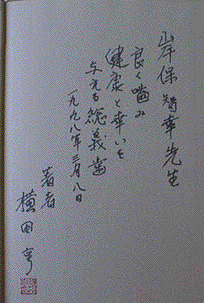 岸保智幸先生
良く噛み
健康と幸いを
与える総義歯
一九九八年三月八日
著者
横田亨